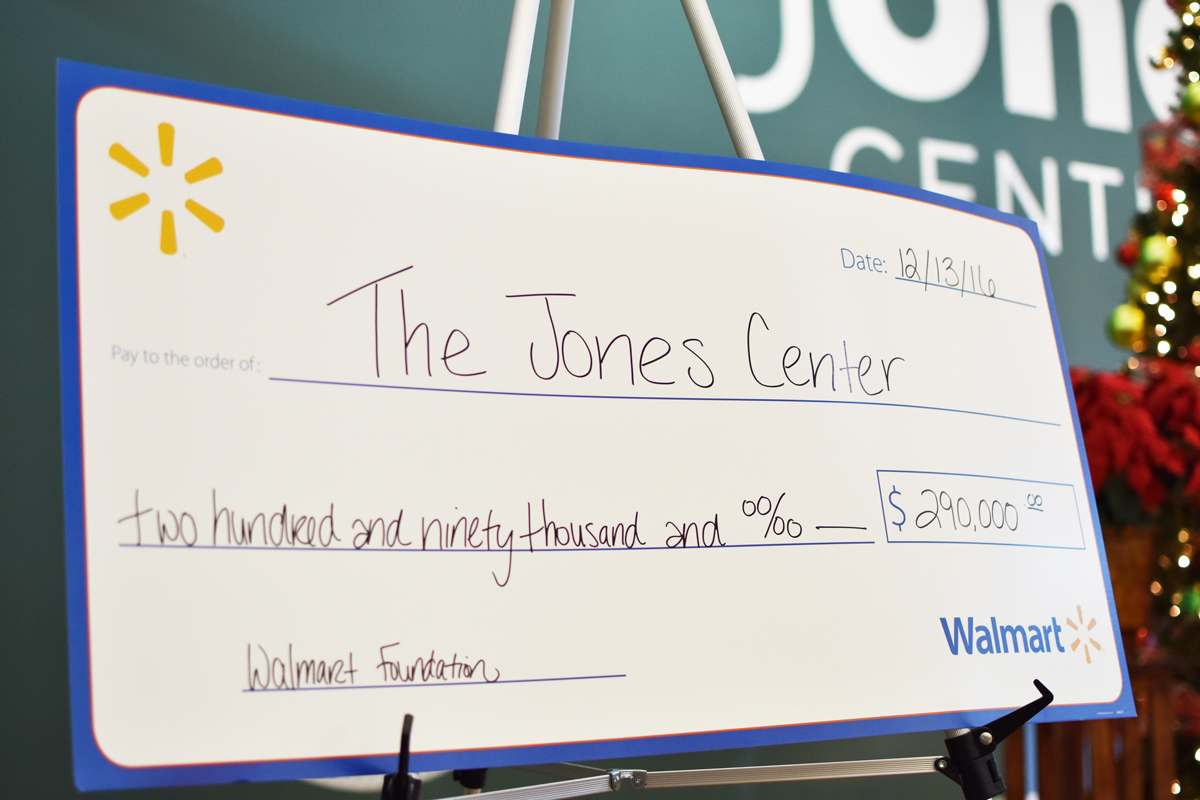 Jone
CENT
Date: 12/13/16
Pay to the order of: The Jones Center
two hundred and ninety thousand and 00/00 — $ 290,000.00
Walmart
Walmart Foundation